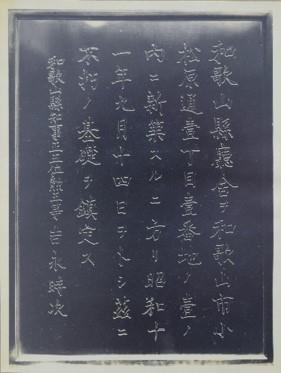 和歌山縣廳舍ヲ和歌山市小
松原通壹丁目壹番地ノ壹ノ
內ニ新築スルニ方リ昭和十
一年九月十四日ヲトシ茲ニ
不朽ノ基礎ヲ鎭定ス
和歌山縣知事正五位勳三等吉永時次